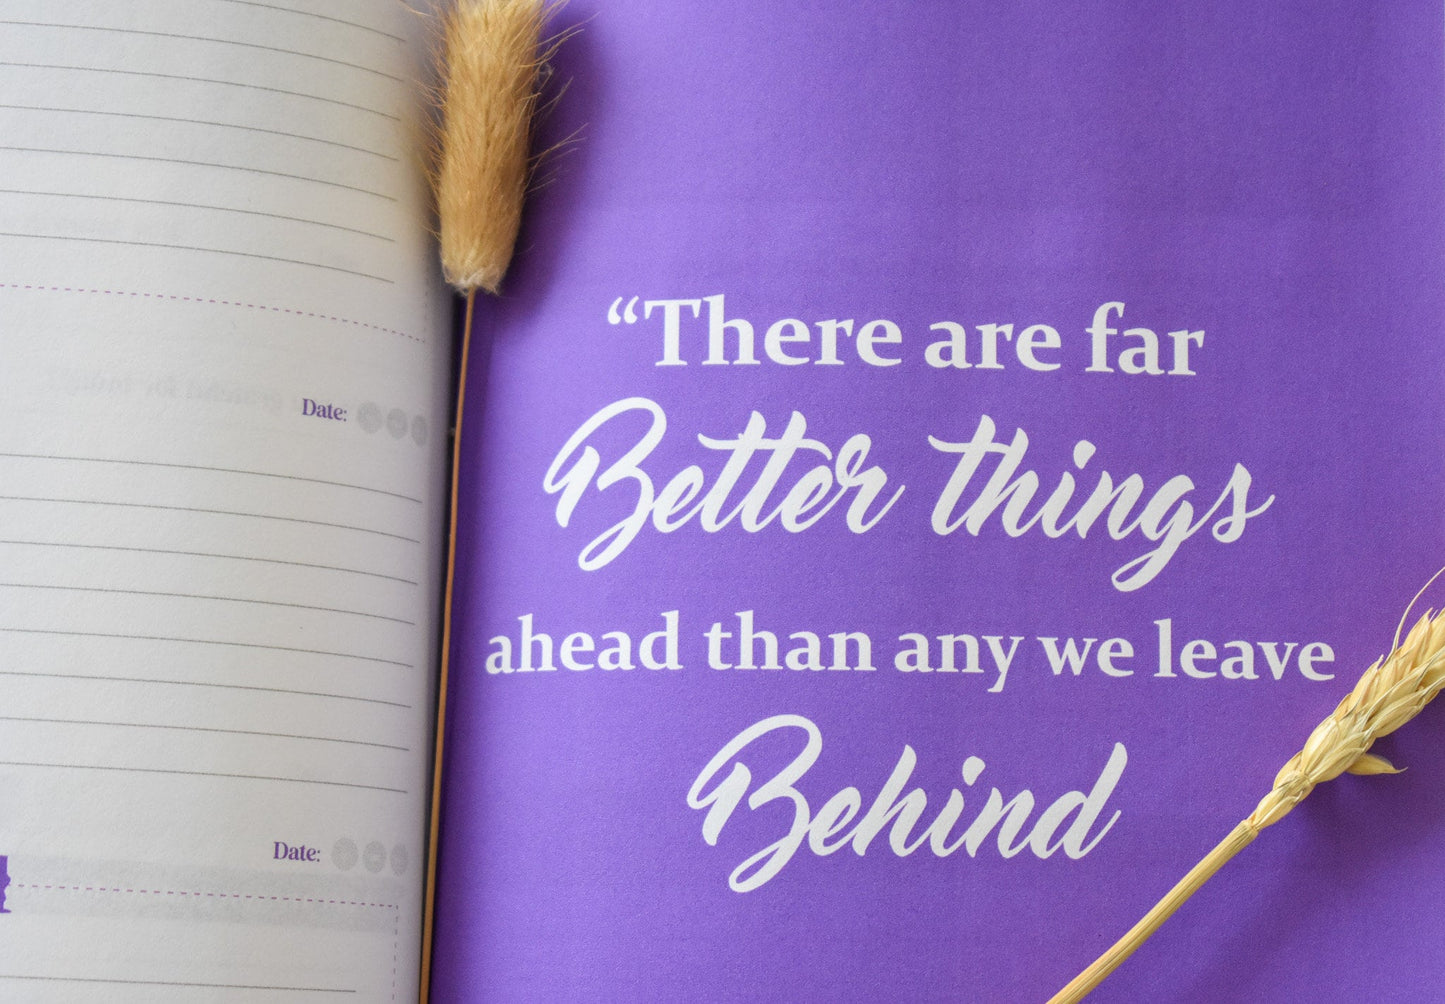 Date:
Date:
“There are far
Better things
ahead than any we leave
Behind